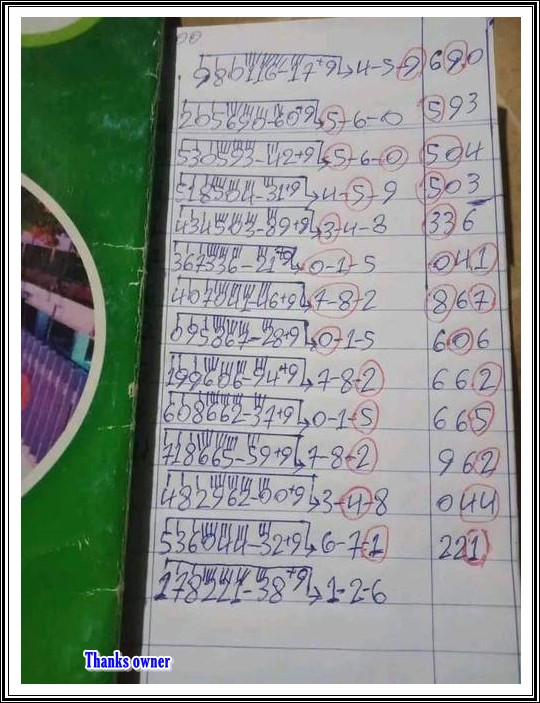 989116-17+9→4-5-9 690
5-6-0 593
530593-42+9→5-6-0 504
518504-31+9→4-5-9 503
434503-89+9→3-4-8 336
367336-21+9→0-1-5 041
407041-46+9→7-8-2 867
095867-28+9→0-1-5 606
199606-94+9→7-8-2 662
608662-37+9→0-1-5 665
718665-59+9→7-8-2 962
482962-00+9→3-4-8 044
536044-32+9→6-7-1 221
178221-38+9→1-2-6
Thanks owner